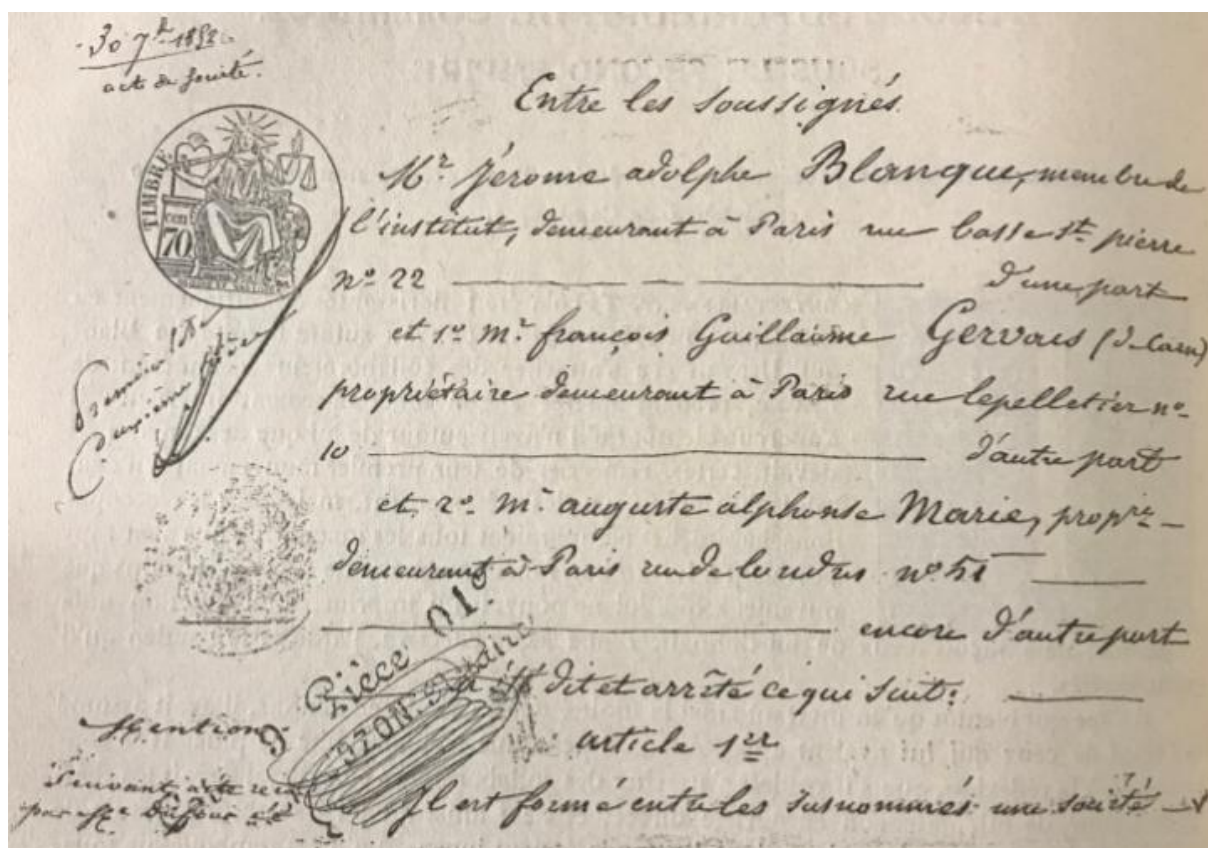 30 7b 1852
acte de société.
Entre les soussignés.
TIMBRE
70
Mr Jérome adolphe Blanqui, membre de
l'institut, demeurant à Paris rue basse st pierre
no 22 d'une part
et 1o mr françois Guillaume Gervais (de Caen)
propriétaire demeurant à Paris rue lepelletier no
10 d'autre part
et 2o mr auguste alphonse Marie, propre
demeurant à Paris rue de londres no 51
encore d'autre part
a été dit et arrêté ce qui suit:
Pièce
article 1er
Mention
Il est formé entre les susnommés une société
Suivant acte reçu
par Me Dufour